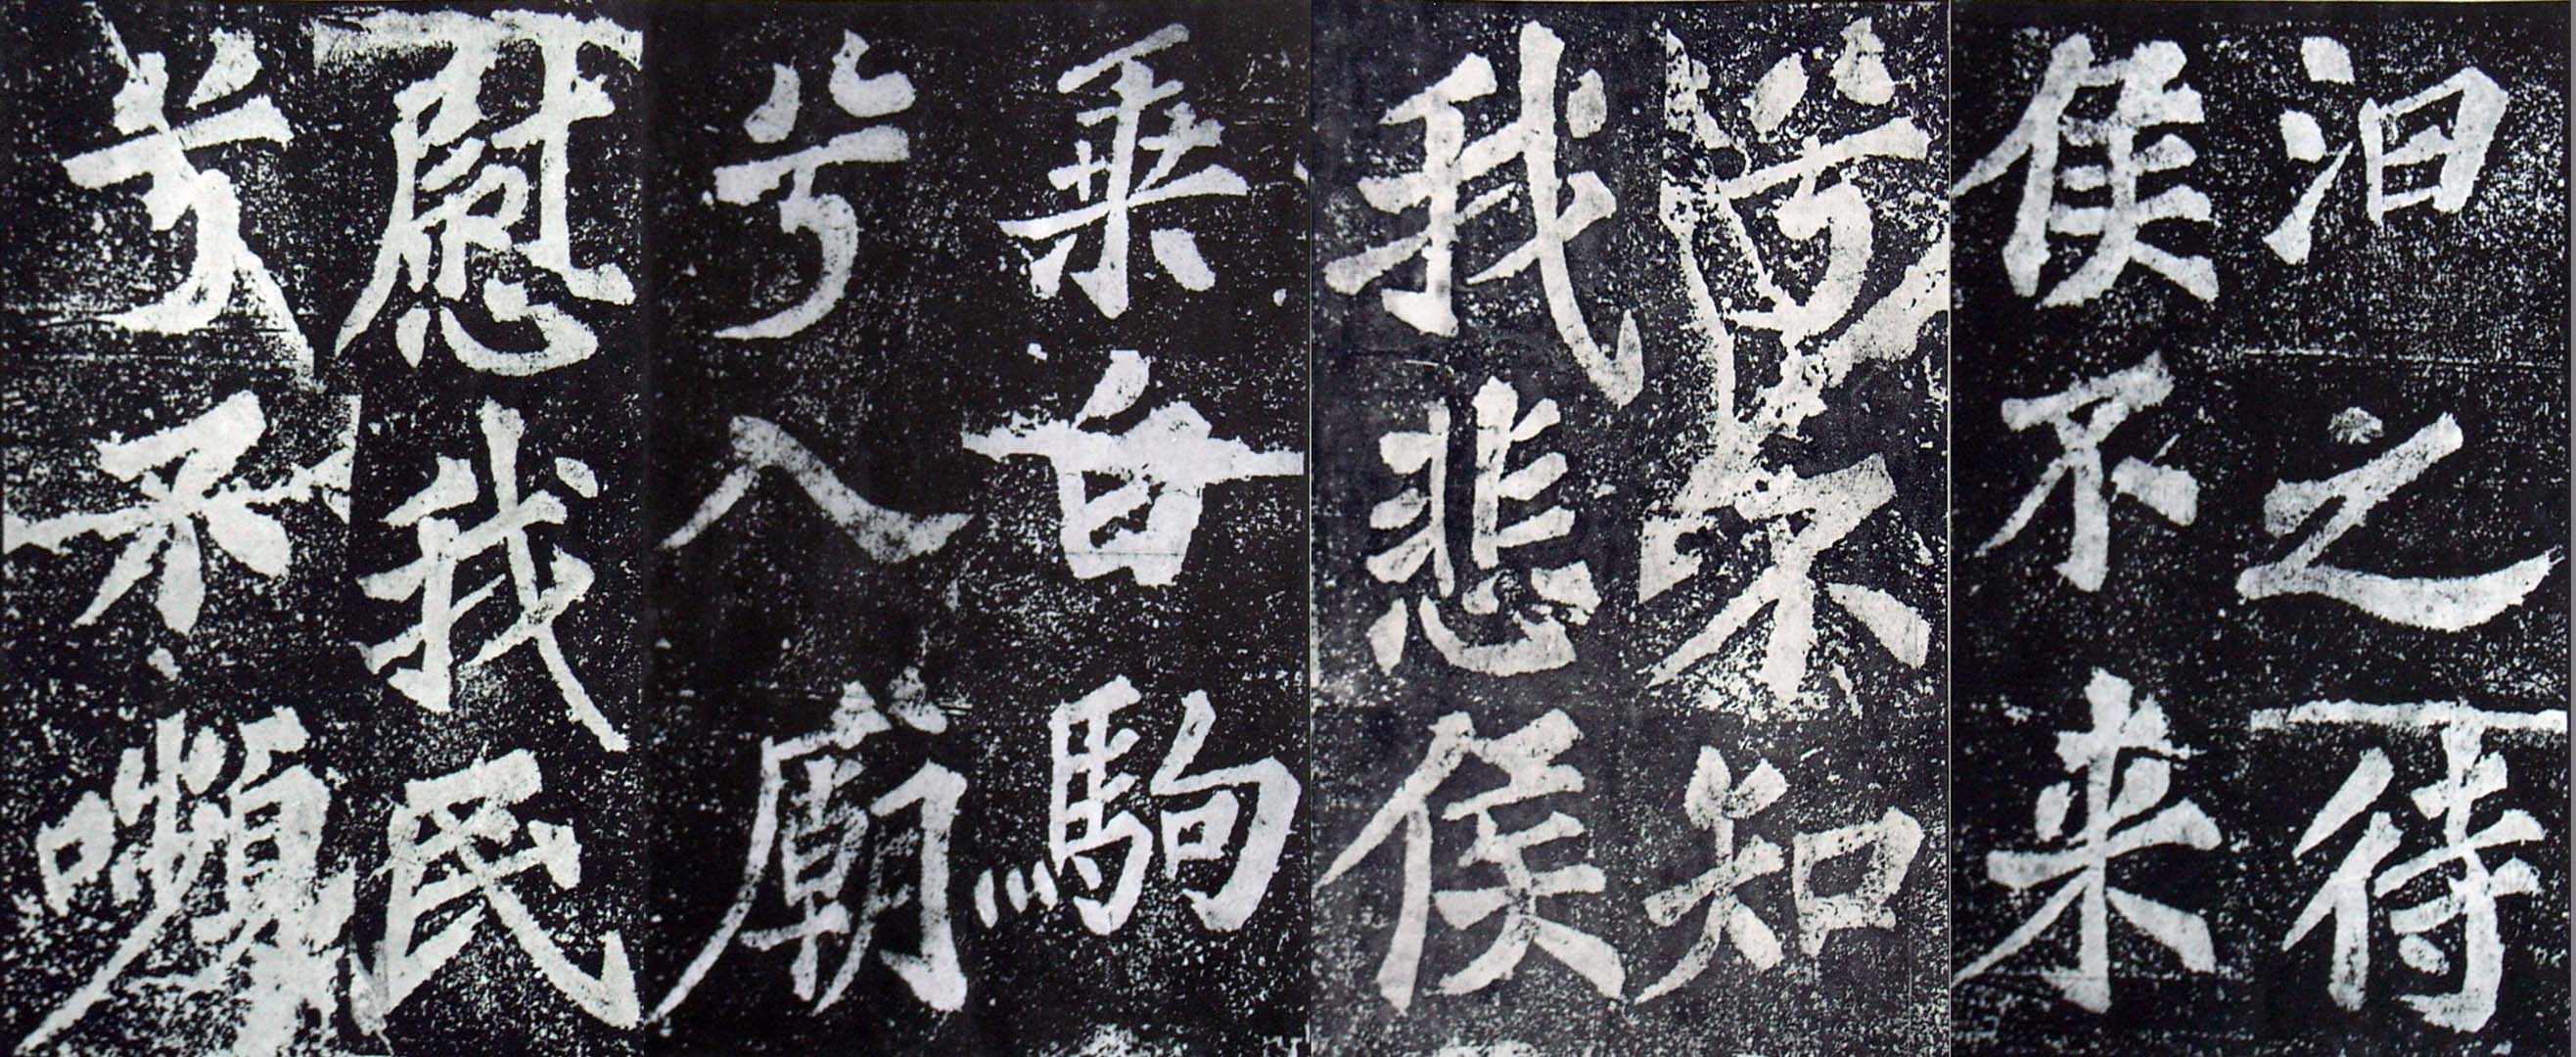 汨之待
侯不来
兮不知
我悲侯
乘白駒
兮入廟
慰我民
兮不嚬